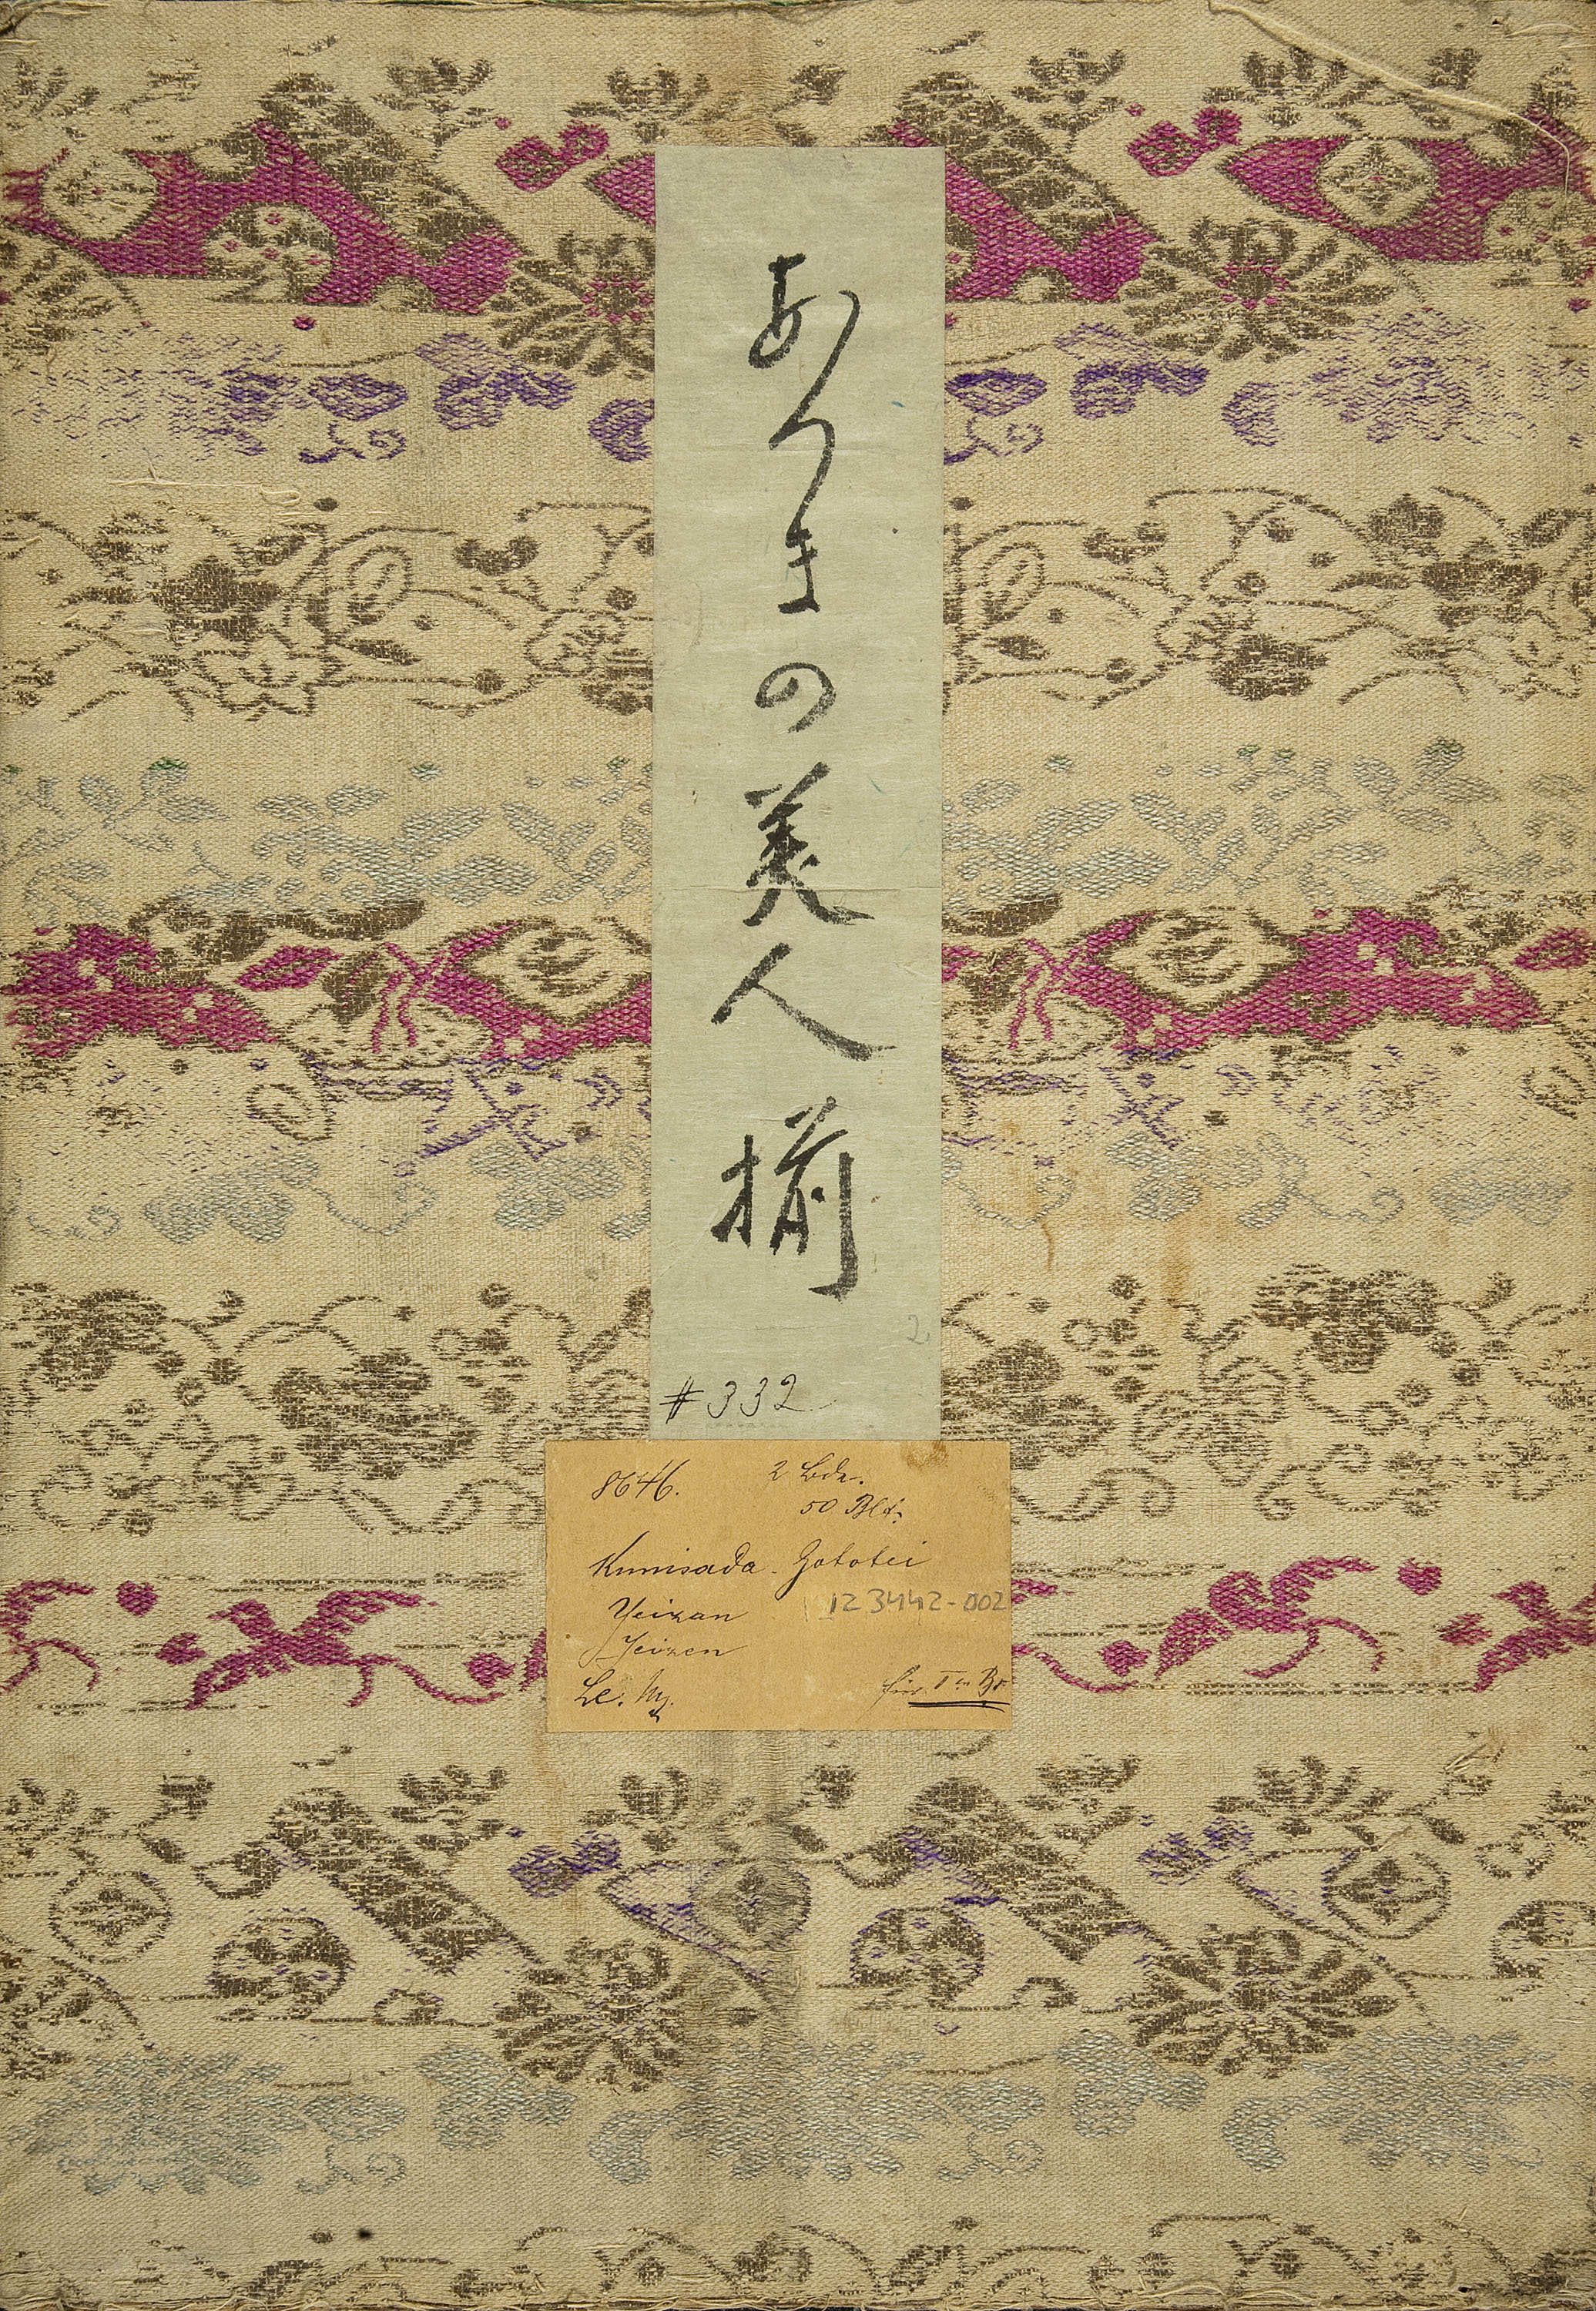 あつまの美人揃
2
#332
8646.
2 Bde.
50 Blt.
Kunisada - Gototei
123442-002
Yeizan
Yeizen